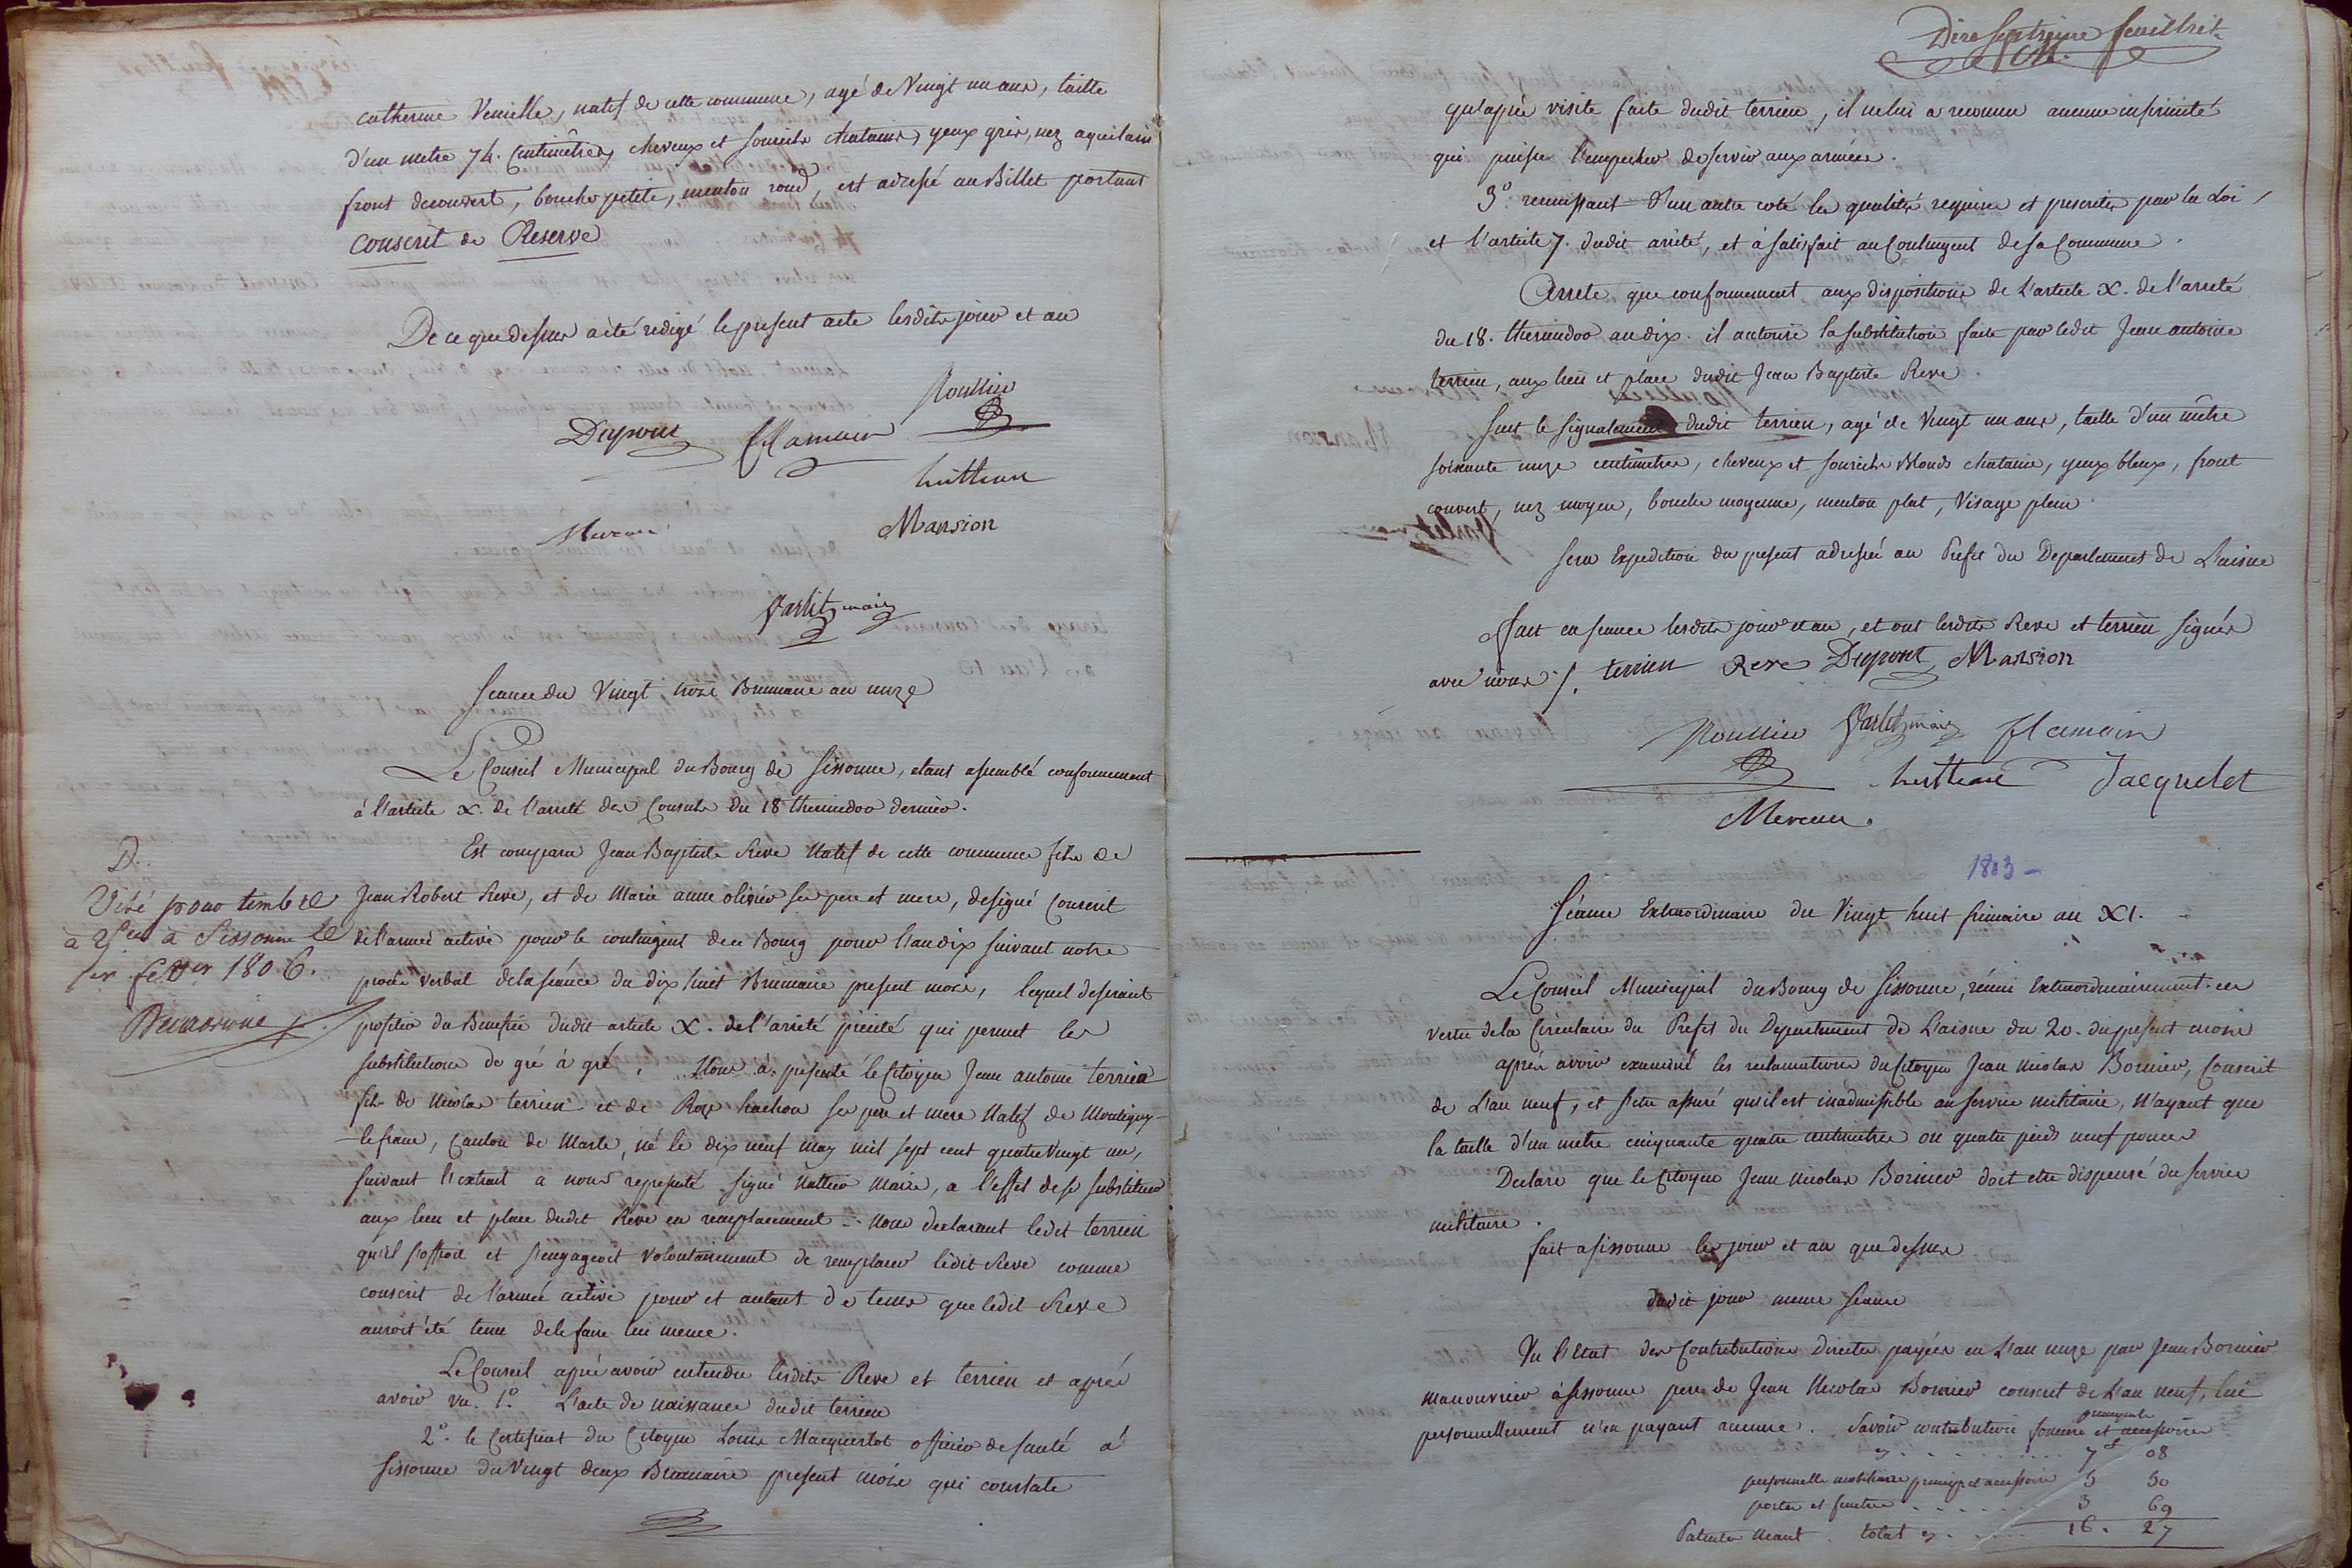 catherine Vemille, natif de cette commune, agé de Vingt un ans, taille
d'un metre 74. Centimêtres, cheveux et sourcils chatains, yeux gris, nez aquilain
front decouvert, bouche petite, menton rond, est adressé un Billet portant
conscrit de Reserve
De ce que dessus a été redigé le present acte lesdits jour et an
Roullier
Dupont flamain
hutteau
Mereau Mansion
Varlet maire
Seance du Vingt trois Brumaire an onze
Le Conseil Municipal du Bourg de Sissonne, etant assemblé conformement
à l'article X. de l'arreté des Consuls du 18 thermidor dernier.
Est comparu Jean Baptiste Reve Natif de cette commune fils de
Jean Robert Reve, et de Marie anne olivier ses pere et mere, designé Conscrit
de l'armée active pour le contingent de ce Bourg pour l'an dix suivant notre
procès Verbal de la séance du dix huit Brumaire present mois, lequel desirant
profiter du Benefice dudit article X. de l'arrêté précité qui permet les
substitutions de gré à gré, Nous à présenté le Citoyen Jean antoine terrien
fils de Nicolas terrien et de Rose hachon ses pere et mere Natif de Montigny
le franc, Canton de Marle, né le dix neuf may mil sept cent quatre Vingt un,
suivant l'extrait a nous representé signé Nattier Maire, a l'effet de se substituer
aux lieu et place dudit Reve en remplacement. Nous declarant ledit terrien
qu'il s'offroit et s'engageoit Volontairement de remplacer ledit Reve comme
conscrit de l'armée active pour et autant de tems que ledit Reve
auroit été tenu de le faire lui meme.
Le Conseil après avoir entendu lesdits Reve et terrien et après
avoir vu. 1°. L'acte de naissance dudit terrien
2°. le Certificat du Citoyen Louis Macquerlot officier de santé à
Sissonne du Vingt deux Brumaire present mois qui constate
D.
Visé pour timbre
à à Sissonne le
1er fevrier 1806.
Dix Septieme feuillet
qu'après visite faite dudit terrien, il ne lui a reconnu aucune infirmité
qui puisse l'empecher de servir aux armées.
3°. reunissant d'un autre coté les qualités requises et prescrites par la Loi
et l'article 7. dudit arrêté, et à satisfait au Contingent de sa Commune.
Arrete que conformement aux dispositions de l'article X. de l'arreté
du 18. thermidor an dix. il autorise la substitution faite par ledit Jean antoine
terrien, aux lieu et place dudit Jean Baptiste Reve.
Suit le signalement dudit terrien, agé de Vingt un ans, taille d'un mêtre
soixante onze centimêtres, cheveux et sourcils Blonds chatains, yeux bleux, front
couvert, nez moyen, bouche moyenne, menton plat, Visage plein.
Sera Expedition du present adressée au Prefet du Departement de L'aisne
Fait en seance lesdits jour et an, et ont lesdits Reve et terrien signés
avec nous ./. terrien Reve Dupont Mansion
Roullier Varlet maire flamain
hutteau Jacquelet
Mereau.
1803 -
Séance Extraordinaire du Vingt huit frimaire an XI.
Le Conseil Municipal du Bourg de Sissonne, réuni Extraordinairement en
vertu de la Circulaire du Prefet du Departement de L'aisne du 20. du present mois
après avoir examiné les reclamations du Citoyen Jean Nicolas Bornier, Conscrit
de L'an neuf, et s'etre assuré qu'il est inadmissible au service militaire, N'ayant que
la taille d'un metre cinquante quatre centimetres ou quatre pieds neuf pouces
Declare que le Citoyen Jean Nicolas Bornier doit etre dispensé du service
militaire.
fait a sissonne les jour et an que dessus
dudit jour meme seance
Vu l'etat des Contributions Directes payées en L'an onze par Jean Bornier
manouvrier à Sissonne pere de Jean Nicolas Bornier conscrit de L'an neuf, lui
personnellement n'en payant aucune. Savoir contribution fonciere principale et accessoires
7 f 08
personnelle mobiliaire princip et accessoires 5 50
portes et fenetres 3 69
Patentes Neant total 16. 27